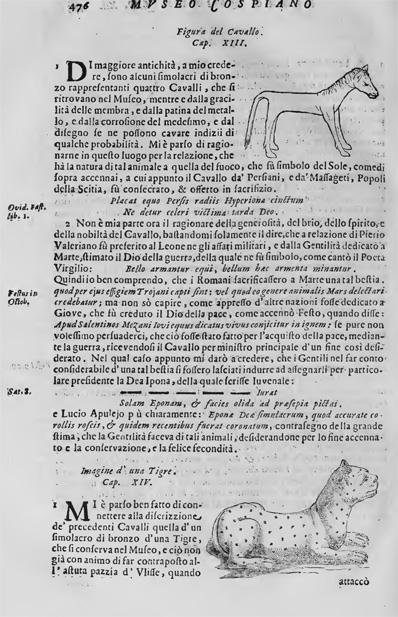 476 MVSEO COSPIANO
Figura del Cavallo.
Cap. XIII.
1 DI maggiore antichità, a mio crede-
re, sono alcuni simolacri di bron-
zo rappresentanti quattro Cavalli, che si
ritrovano nel Museo, mentre e dalla graci-
lità delle membra, e dalla patina del metal-
lo, e dalla corrosione del medesimo, e dal
disegno se ne possono cavare indizii di
qualche probabilità. Mi è parso di ragio-
narne in questo luogo per la relazione, che
hà la natura di tal animale a quella del fuoco, che fù simbolo del Sole, comedi
sopra accennai, a cui appunto il Cavallo da' Persiani, e da' Massageti, Popoli
della Scitia, fù consecrato, & offerto in sacrifizio.
Ovid. Fast.
lib. 1.
Placat equo Persis radiis Hyperiona cinctum
Ne detur celeri victima tarda Deo.
2 Non è mia parte ora il ragionare della generosità, del brio, dello spirito, e
della nobiltà del Cavallo, bastandomi solamente il dire, che a relazione di Pierio
Valeriano fù preferito al Leone ne gli affari militari, e dalla Gentilità dedicato a
Marte, stimato il Dio della guerra, della quale ne fù simbolo, come cantò il Poeta
Virgilio: Bello armantur equi, bellum hæc armenta minantur.
Quindi io ben comprendo, che i Romani sacrificassero a Marte una tal bestia.
Festus in
Octob.
quod per ejus effigiem Trojani capti sunt: vel quod eo genere animalis Mars delectari
credebatur; ma non sò capire, come appresso d'altre nazioni fosse dedicato a
Giove, che fù creduto il Dio della pace, come accennò Festo, quando disse:
Apud Salentinos Mezani Iovi equus dicatus vivus conjicitur in ignem: se pure non
volessimo persuaderci, che ciò fosse stato fatto per l'acquisto della pace, median-
te la guerra, ricevendosi il Cavallo per ministro principale d'un fine così desi-
derato. Nel qual caso appunto mi darò a credere, che i Gentili nel far conto
considerabile d'una tal bestia si fossero lasciati indurre ad assegnarli per partico-
lare presidente la Dea Ipona, della quale scrisse Iuvenale:
Sat. 8.
Iurat
Solam Eponam, & facies olida ad præsepia pictas.
e Lucio Apulejo più chiaramente: Eponæ Deæ simulacrum, quod accurate co-
rollis roseis, & quidem recentibus fuerat coronatum, contrasegno della grande
stima, che la Gentilità faceva di tali animali, desiderandone per lo fine accenna-
to e la conservazione, e la felice fecondità.
Imagine d' una Tigre.
Cap. XIV.
1 MI è parso ben fatto di con-
nettere alla discrizzione
de' precedenti Cavalli quella d'un
simolacro di bronzo d'una Tigre,
che si conserva nel Museo, e ciò non
già con animo di far contraposto al-
l' astuta pazzia d' Vlisse, quando
attaccò